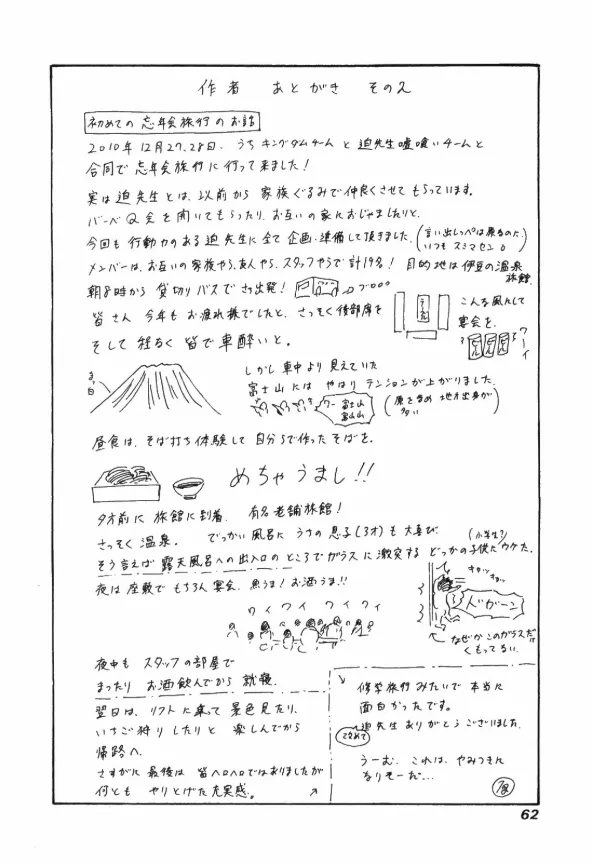 作者 あとがき その2
初めての忘年会旅行のお話
2010年12月27.28日、うちキングダムチームと迫先生嘘喰いチームと
合同で忘年会旅行に行って来ました!
実は迫先生とは、以前から家族ぐるみで仲良くさせてもらっています。
バーベQ会を開いてもらったり、お互いの家におじゃましたりと、
今回も行動力のある迫先生に全て企画・準備して頂きました。(言い出しっぺは原なのに いつもスミマセン。)
メンバーは、お互いの家族やら、友人やら、スタッフやらで計19名! 目的地は伊豆の温泉旅館。
朝8時から貸切りバスでさっ出発!
ブロロロ
皆さん今年もお疲れ様でしたと、さっそく後部席を
こんな風にして
宴会を。
ワーイ
そして程なく皆で車酔いと。
まっ白
しかし車中より見えていた
富士山にはやはりテンションが上がりました。
ワー富士山富士山
(原を含め地方出身が多い)
昼食は、そば打ち体験して自分らで作ったそばを。
めちゃうまし!!
夕方前に旅館に到着、有名老舗旅館!
さっそく温泉。でっかい風呂にうちの息子(3才)も大喜び。
そう言えば露天風呂への出入口のところでガラスに激突するどっかの子供にウケた。
(小学生?)
キャッキャッ
ドガーン
なぜかこのガラスだけくもってない。
夜は座敷でもちろん宴会、魚うま!お酒うま!!
ワイワイ ワイワイ
夜中もスタッフの部屋で
まったりお酒飲んでから就寝。
翌日は、リフトに乗って景色見たり、
いちご狩りしたりと楽しんでから
帰路へ。
さすがに最後は皆ヘロヘロではありましたが
何ともやりとげた充実感。
修学旅行みたいで本当に
面白かったです。
改めて
迫先生ありがとうございました。
うーむ、これは、やみつきに
なりそーだ…
原
62